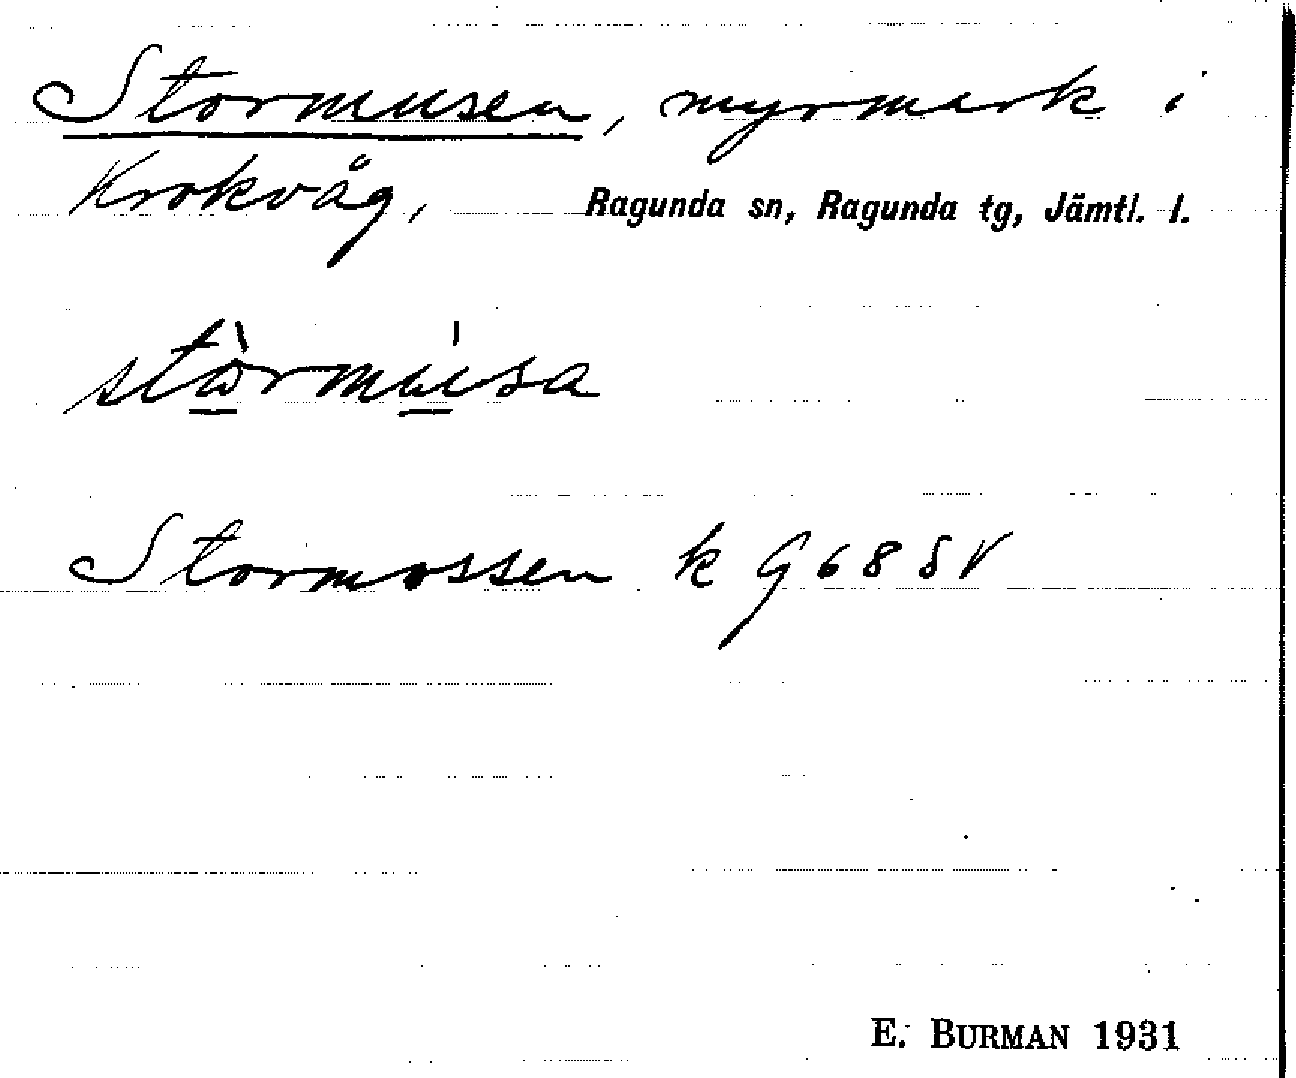 Stormusen, myrmark i
Krokvåg, Ragunda sn, Ragunda tg, Jämtl. l.
stòrmúsa
Stormossen k G 68 SV
E. BURMAN 1931